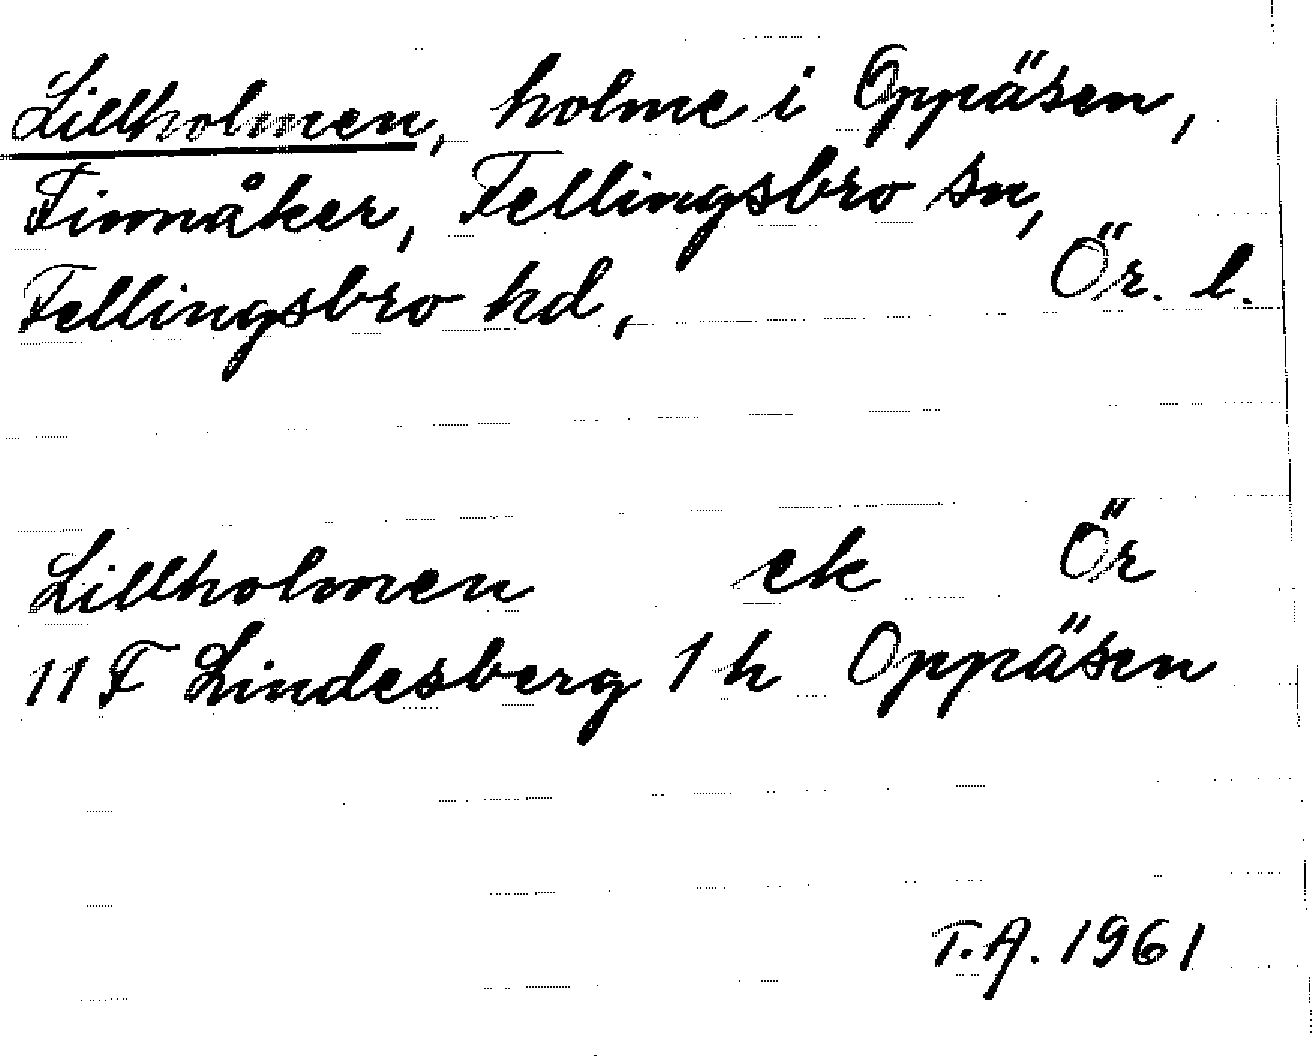 Lillholmen, holme i Oppäsen,
Finnåker, Fellingsbro sn,
Fellingsbro hd, Ör. l.
Lillholmen ek Ör
11 F Lindesberg 1 h Oppäsen
T.A. 1961